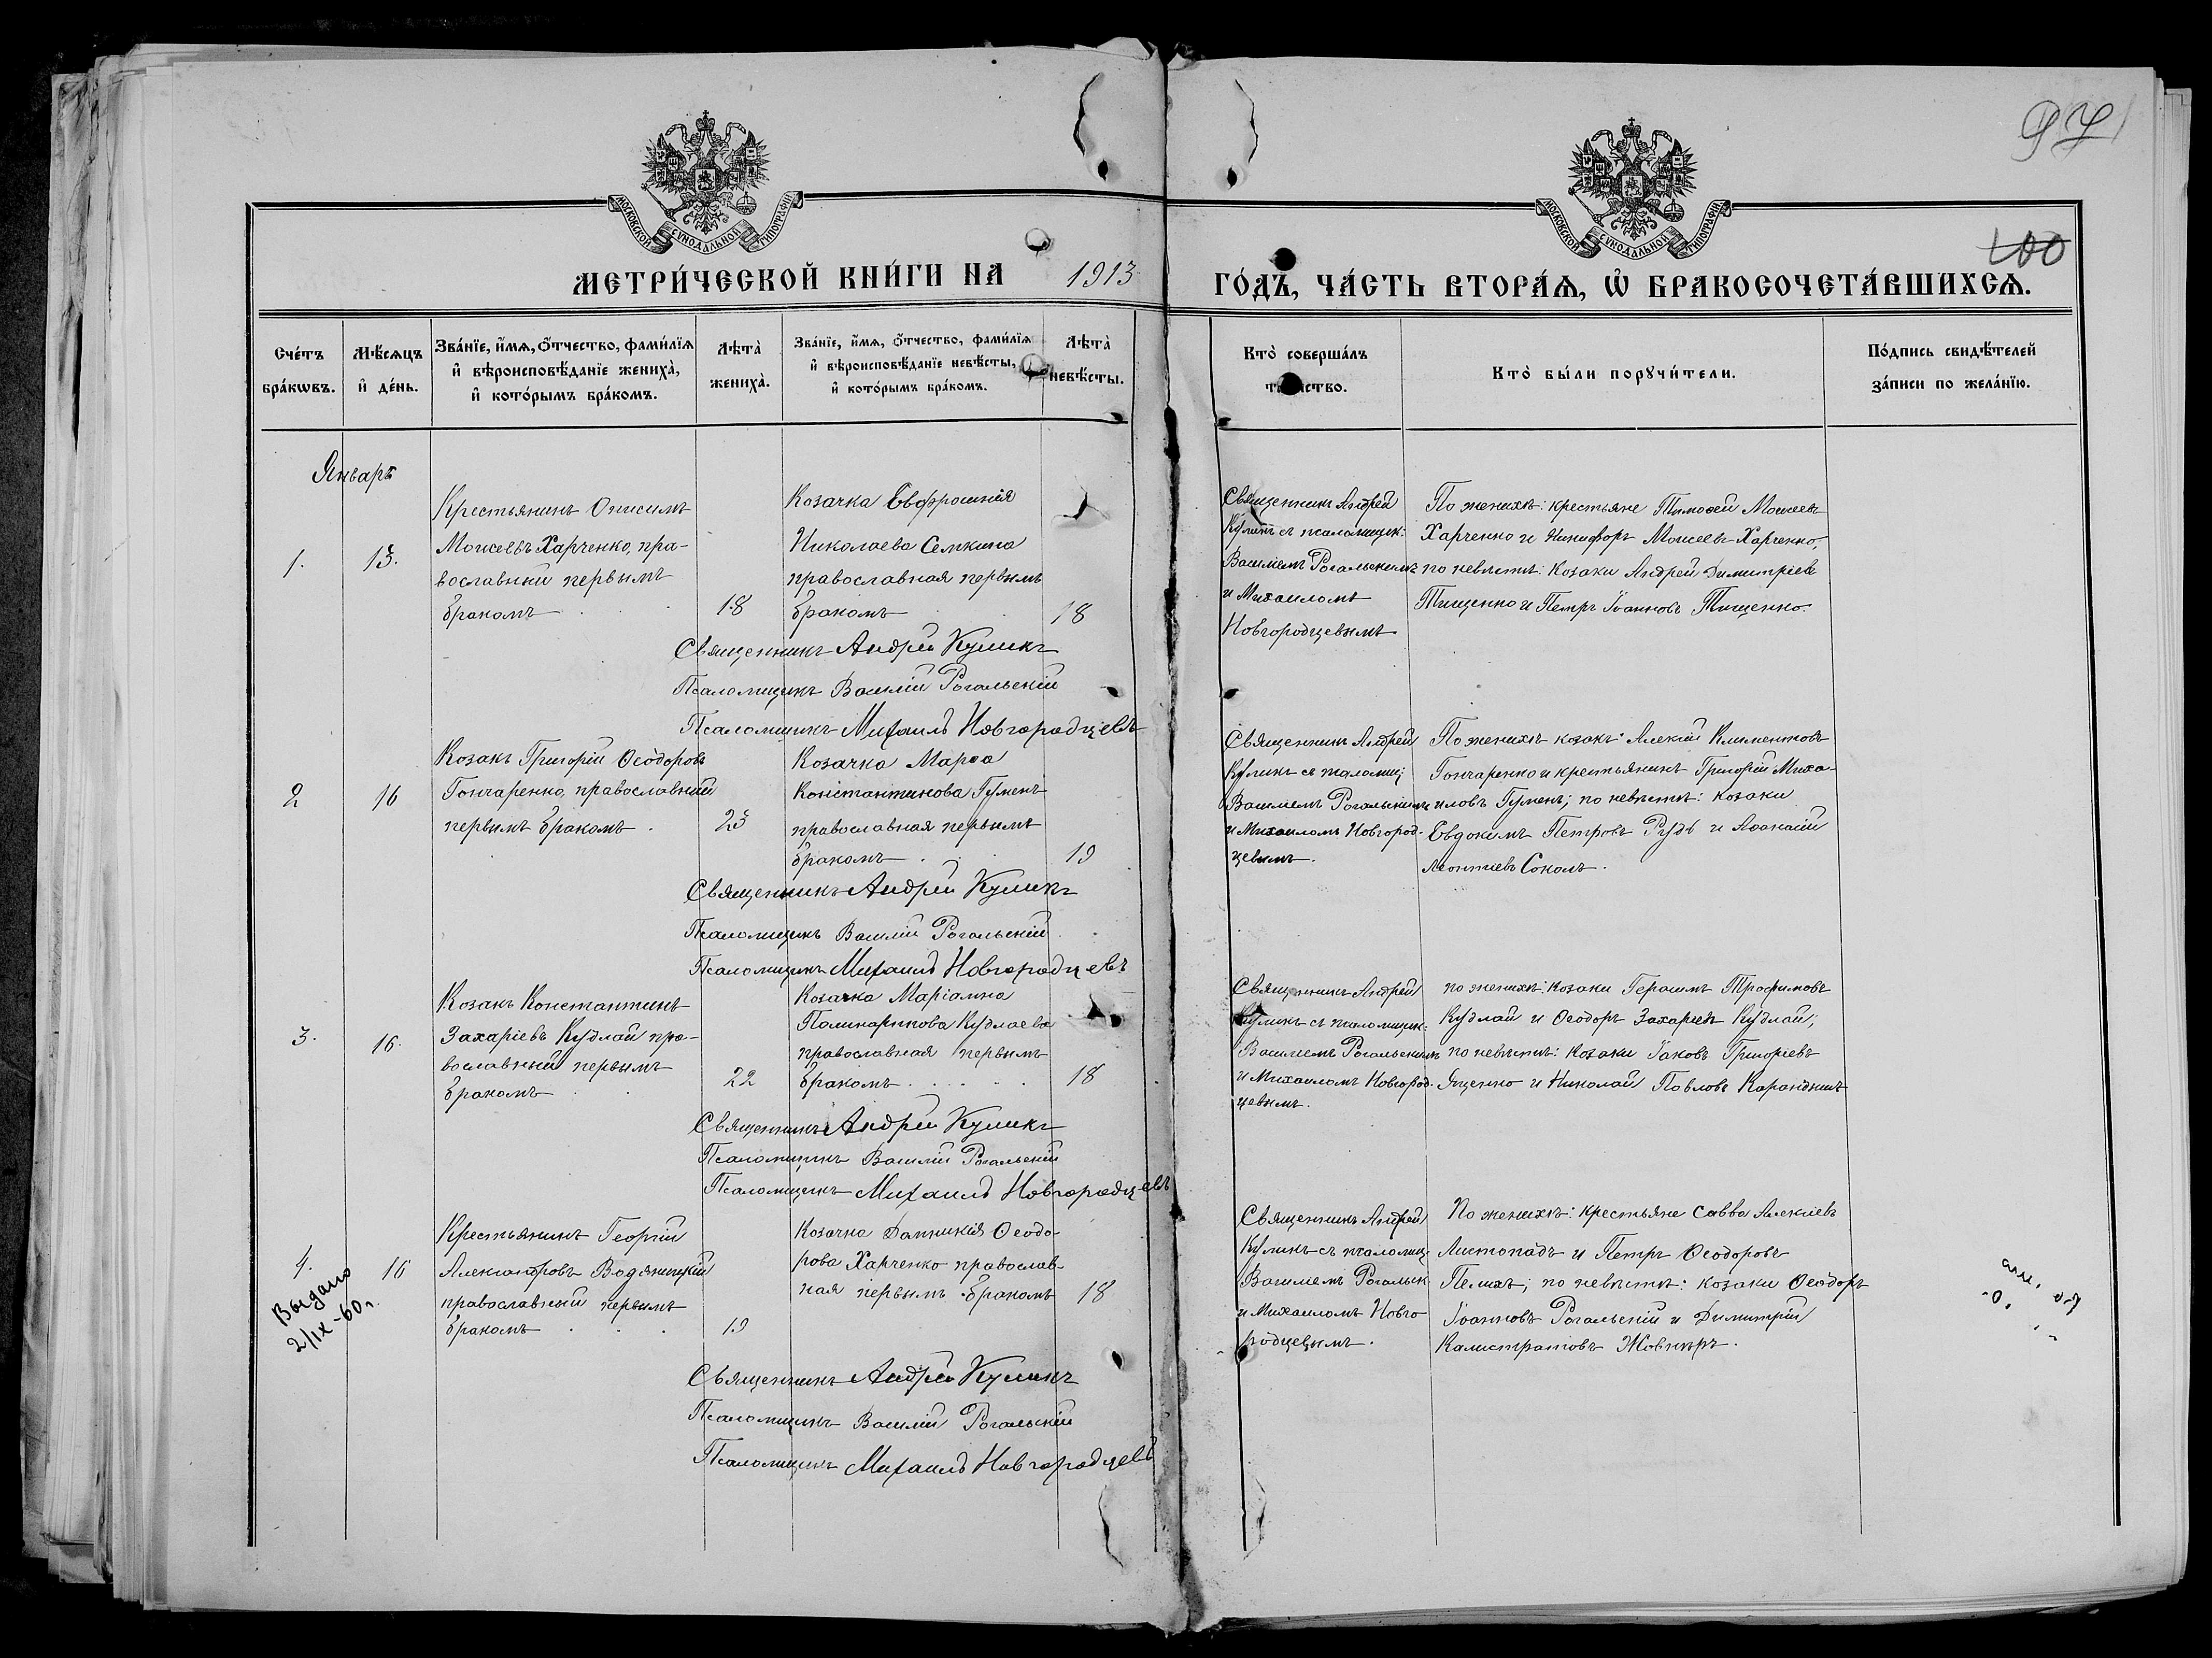 97
100
МОСКОВСКОЙ СѴНОДАЛЬНОЙ ТИПОГРАФІИ
МОСКОВСКОЙ СѴНОДАЛЬНОЙ ТИПОГРАФІИ
МЕТРИ́ЧЕСКОЙ КНИ́ГИ НА 1913 ГО́ДЪ, ЧА́СТЬ ВТОРА́Ѧ, Ѡ҆ БРАКОСОЧЕТА́ВШИХСѦ.
Сче́тъ
бра́кѡвъ.
Мѣ́сѧцъ
и҆ де́нь.
Зва́нїе, и҆́мѧ, ѻ҆́тчество, фами́лїѧ
и҆ вѣроисповѣ́данїе жениха̀,
и҆ кото́рымъ бра́комъ.
Лѣта̀
жениха̀.
Зва́нїе, и҆́мѧ, ѻ҆́тчество, фами́лїѧ
и҆ вѣроисповѣ́данїе невѣ́сты,
и҆ кото́рымъ бра́комъ.
Лѣта̀
невѣ́сты.
Кто̀ соверша́лъ
та́инство.
Кто̀ бы́ли порꙋчи́тели.
По́дпись свидѣ́телей
за́писи по жела́нїю.
Январь
1.
13.
Крестьянинъ Онисимъ
Моисеевъ Харченко, пра-
вославный первымъ
бракомъ
18
Козачка Евфросинія
Николаева Семкина
православная первымъ
бракомъ
18
Священникъ Андрей
Куликъ съ псаломщик:
Василіемъ Рогальскимъ
и Михаиломъ
Новгородцевымъ
По женихѣ: крестьяне Тимофей Моисеевъ
Харченко и Никифоръ Моисеевъ Харченко,
по невѣстѣ: Козаки Андрей Димитріевъ
Тищенко и Петръ Іоанновъ Тищенко.
Священникъ Андрей Куликъ
Псаломщикъ Василій Рогальскій
Псаломщикъ Михаилъ Новгородцевъ
2
16
Козакъ Григорій Ѳеодоровъ
Гончаренко, православный
первымъ бракомъ.
23
Козачка Марѳа
Константинова Гуменъ
православная первымъ
бракомъ
19
Священникъ Андрей
Куликъ съ псаломщ:
Василіемъ Рогальскимъ
и Михаиломъ Новгород-
цевымъ.
По женихѣ козакъ: Алексій Климентовъ
Гончаренко и крестьянинъ Григорій Миха-
иловъ Гуменъ; по невѣстѣ: козаки
Евдокимъ Петровъ Рудь и Аѳанасій
Леонтіевъ Соколъ.
Священникъ Андрей Куликъ
Псаломщикъ Василій Рогальскій
Псаломщикъ Михаилъ Новгородцевъ
3.
16.
Козакъ Константинъ
Захаріевъ Кудлай пра-
вославный первымъ
бракомъ
22
Козачка Маріамна
Кудлаева
православная первымъ
бракомъ
18
Священникъ Андрей
Куликъ съ псаломщик:
Василіемъ Рогальскимъ
и Михаиломъ Новгород-
цевымъ.
по женихѣ: Козаки Герасимъ Трофимовъ
Кудлай и Ѳеодоръ Захаріевъ Кудлай;
по невѣстѣ: Козаки Іаковъ Григоріевъ
Яценко и Николай Павловъ
Священникъ Андрей Куликъ
Псаломщикъ Василій Рогальскій
Псаломщикъ Михаилъ Новгородцевъ
4.
16
Выдано
2/IX-60г.
Крестьянинъ Георгій
Александровъ Водяницкій
православный первымъ
бракомъ
19
Козачка Домникія Ѳеодо-
рова Харченко православ-
ная первымъ бракомъ
18
Священникъ Андрей
Куликъ съ псаломщ:
Василіемъ Рогальск
и Михаиломъ Новго
родцевымъ.
По женихѣ: крестьяне Савва Алексіевъ
Листопадъ и Петръ Ѳеодоровъ
Пелихъ; по невѣстѣ: козаки Ѳеодоръ
Іоанновъ Рогальскій и Димитрій
Калистратовъ Жовниръ.
Священникъ Андрей Куликъ
Псаломщикъ Василій Рогальскій
Псаломщикъ Михаилъ Новгородцевъ